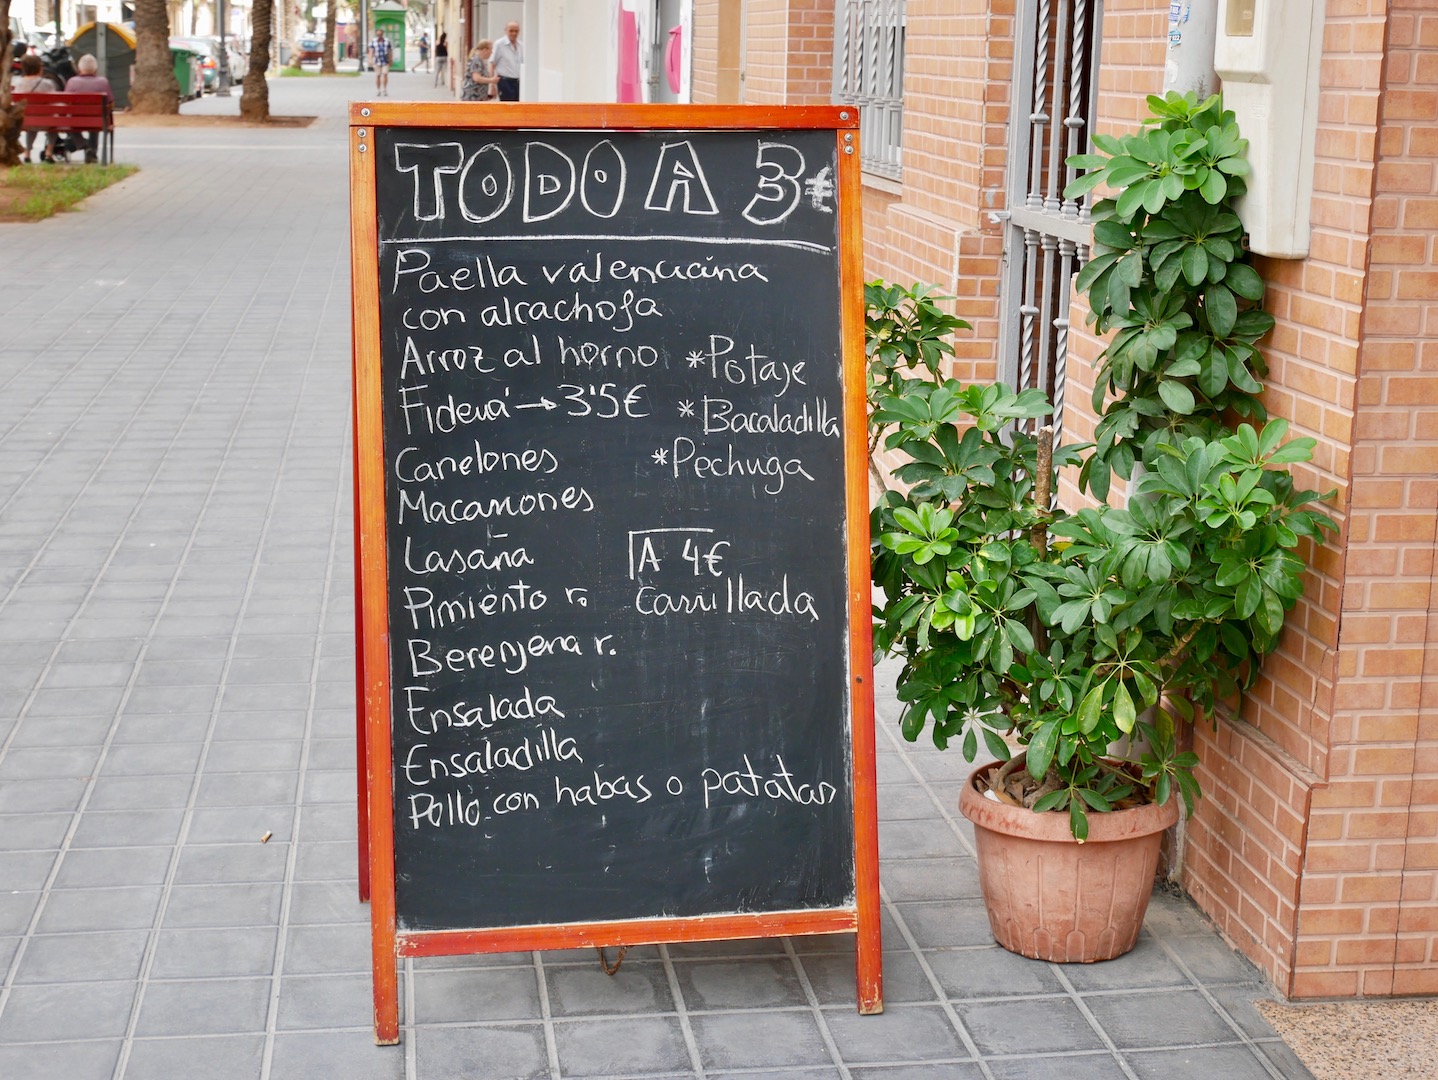 TODO A 3€
Paella valenciana
con alcachofa
Arroz al horno
Fideuá → 3'5€
Canelones
Macarrones
Lasaña
Pimiento r.
Berenjena r.
Ensalada
Ensaladilla
Pollo con habas o patatas
*Potaje
*Bacaladilla
*Pechuga
A 4€
Carrillada